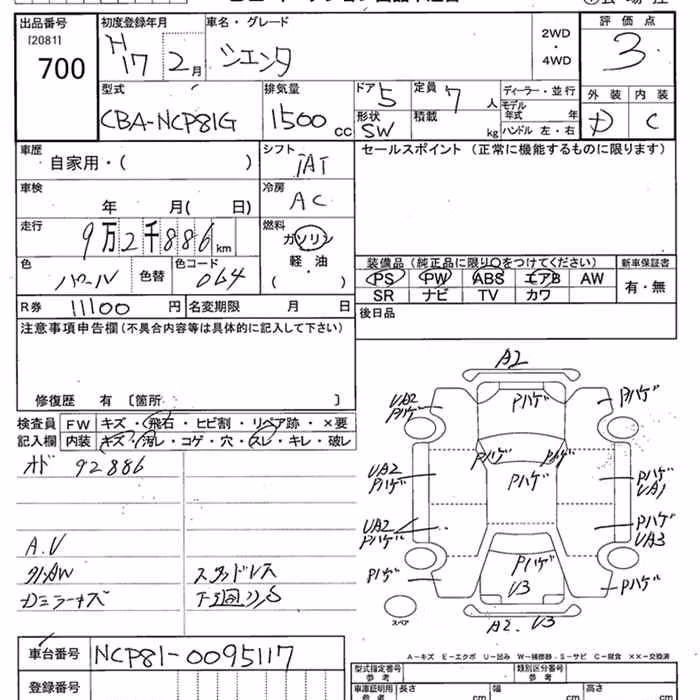 出品番号 初度登録年月 車名・グレード 評価点
[20811]
700 H17 2月 シエンタ 2WD・4WD 3
型式 排気量 ドア 定員 ディーラー・並行 外装 内装
CBA-NCP81G 1500cc 5 7人 モデル年式 年 D C
形状 SW 積載 kg ハンドル 左・右
車歴 自家用・( ) シフト IAT セールスポイント(正常に機能するものに限ります)
車検 年 月( 日) 冷房 AC
走行 9万2千886km 燃料 ガソリン
軽・油
( )
色 パール 色替 色コード 064
装備品(純正品に限り○をつけてください) 新車保証書
PS PW ABS エアB AW 有・無
SR ナビ TV カワ
R券 11100円 名変期限 月 日 後日品
注意事項申告欄(不具合内容等は具体的に記入して下さい)
修復歴 有 〔箇所 〕
検査員 FW キズ・飛石・ヒビ割・リペア跡・×要
記入欄 内装 キズ・汚レ・コゲ・穴・スレ・キレ・破レ
オド 92886
A.V
スタッドレス
Dミラーキズ 下回りS
A2
UA2 Pハゲ Pハゲ Pハゲ
Pハゲ Pハゲ
UA2 Pハゲ Pハゲ Pハゲ UA1
UA2 Pハゲ Pハゲ UA3
Pハゲ Pハゲ Pハゲ
U3
スペア
A2.U3
A－キズ E－エクボ U－凹み W－補修跡 S－サビ C－腐食 ××－交換済
車台番号 NCP81-0095117
登録番号
型式指定番号 参考 類別区分番号 参考
車庫証明用 参考 長さ cm 幅 cm 高さ cm